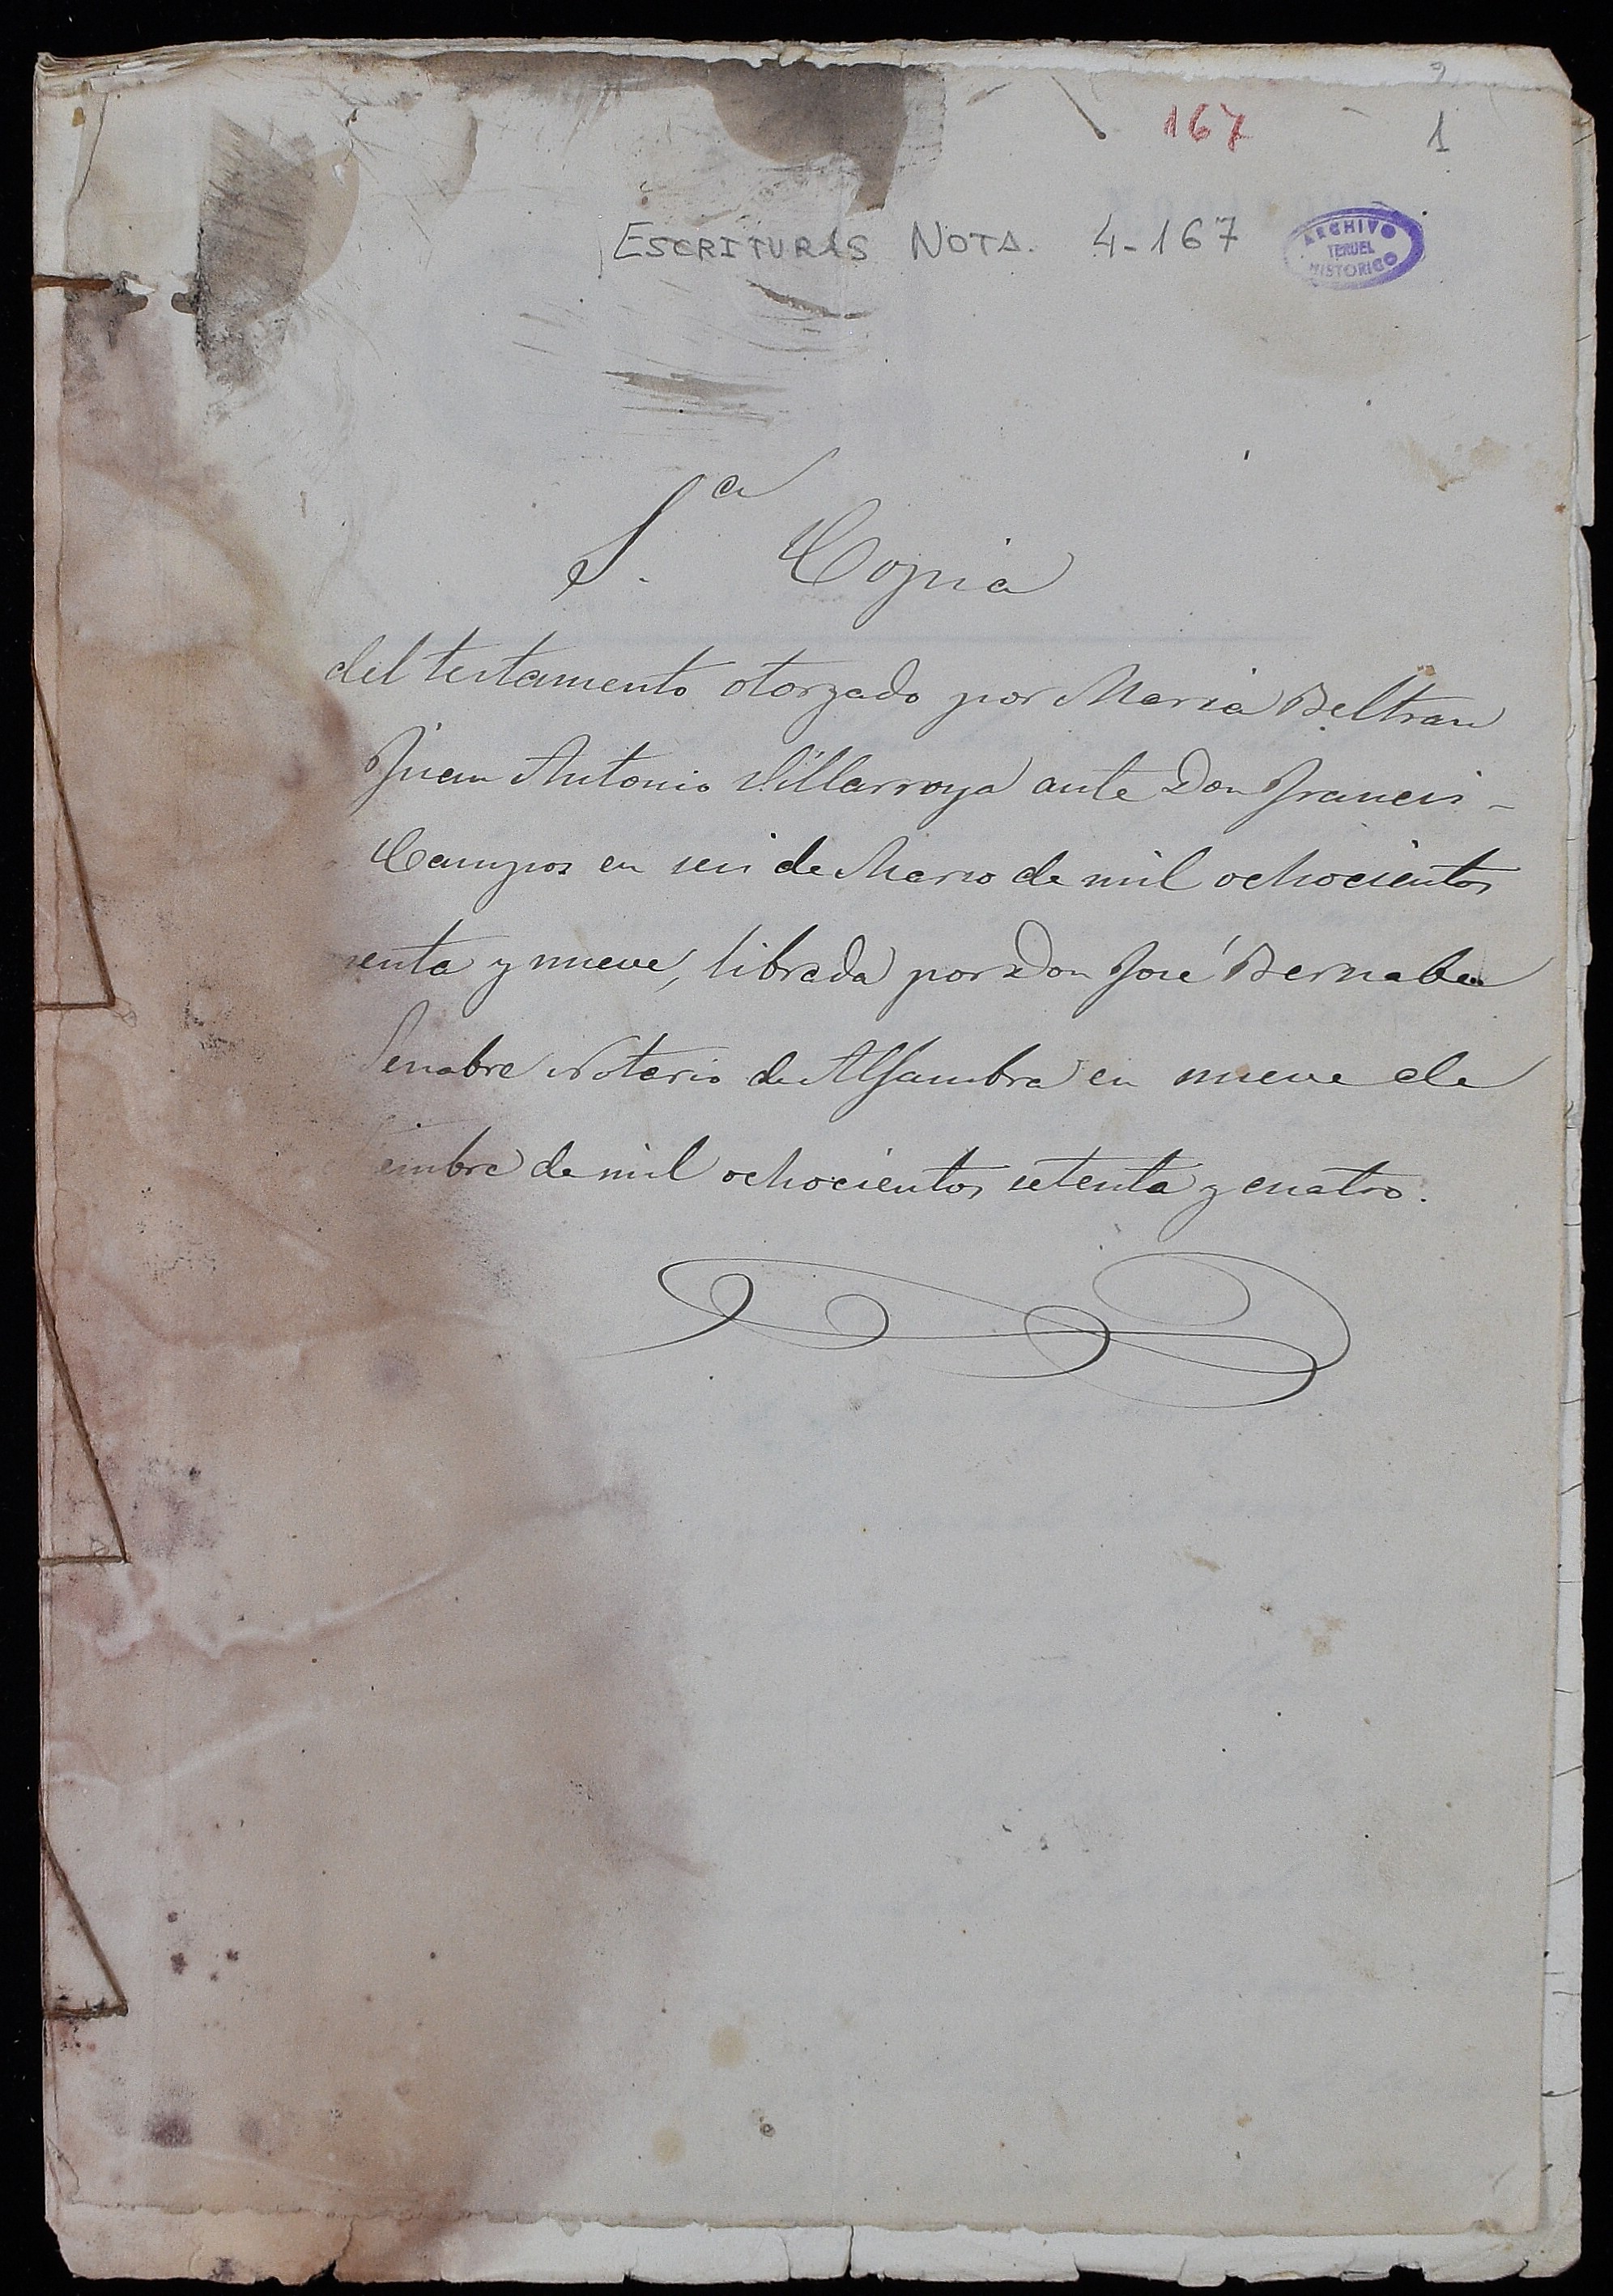 167
1
ESCRITURAS NOTA. 4-167
ARCHIVO
TERUEL
HISTORICO
S.ª Copia
del testamento otorgado por Maria Beltran
Juan Antonio Villarroya ante Don Francis-
Campos en seis de Marzo de mil ochocientos
senta y nueve, librada por Don José Bernabeu
Senabre Notario de Alfambra en nueve de
embre de mil ochocientos setenta y cuatro.